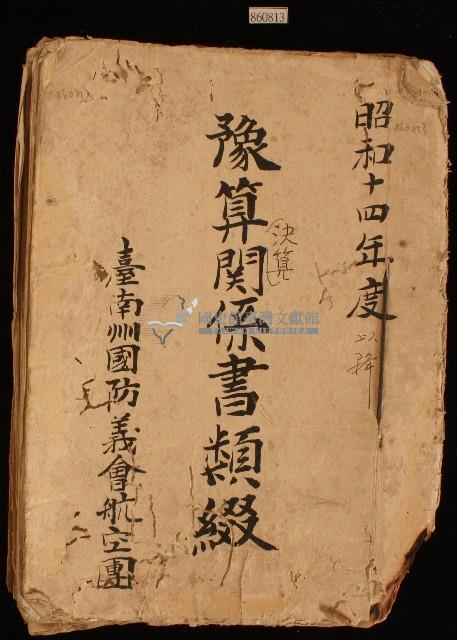 860813
昭和十四年度
以降
豫算関係書類綴
決算
臺南州國防義會航空團
國史館臺灣文獻館
TAIWAN HISTORICA